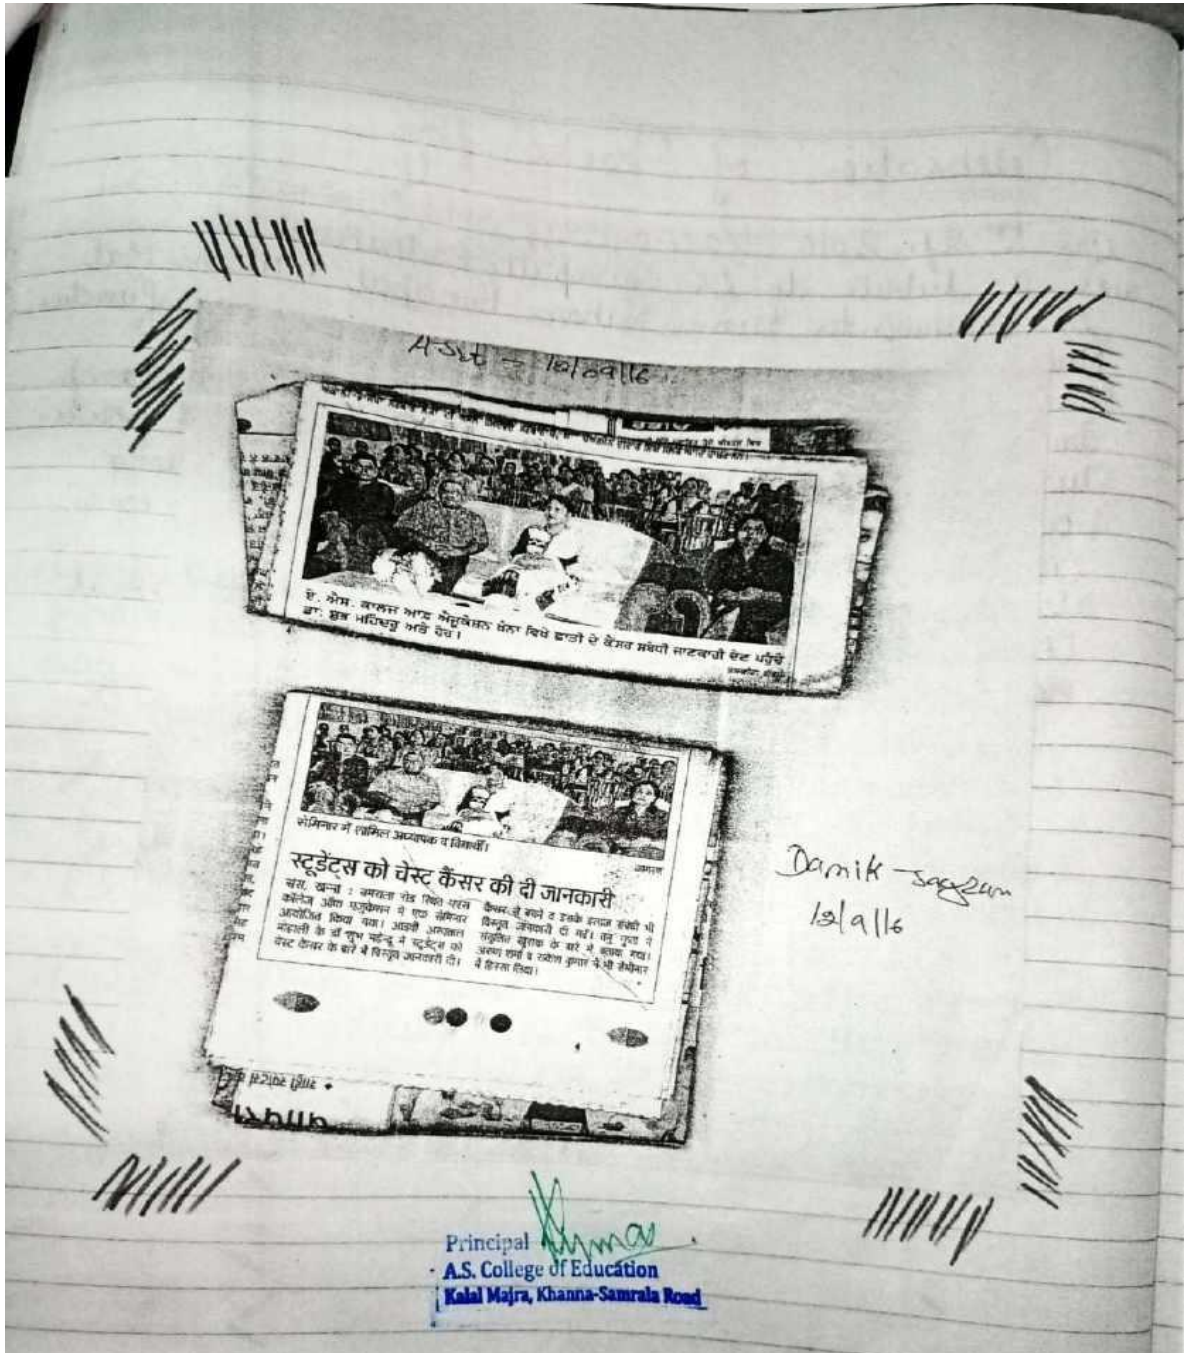 12/09/16
ਏ. ਐਸ. ਕਾਲਜ ਆਫ਼ ਐਜੂਕੇਸ਼ਨ ਖੰਨਾ ਵਿਖੇ ਛਾਤੀ ਦੇ ਕੈਂਸਰ ਸਬੰਧੀ ਜਾਣਕਾਰੀ ਦੇਣ ਪਹੁੰਚੇ
ਡਾ: ਸ਼ੁਭ ਮਹਿੰਦਰੂ ਅਤੇ ਹੋਰ।
सेमिनार में शामिल अध्यापक व विद्यार्थी।
जागरण
स्टूडेंट्स को चेस्ट कैंसर की दी जानकारी
खन्ना : समराला रोड स्थित एएस
कॉलेज ऑफ एजुकेशन में एक सेमिनार
आयोजित किया गया। आइवी अस्पताल
मोहाली के डॉ शुभ महेन्द्रू ने स्टूडेंट्स को
चेस्ट कैंसर के बारे में विस्तृत जानकारी दी।
कैंसर से बचने व इसके इलाज संबंधी भी
विस्तृत जानकारी दी गई। तनु गुप्ता ने
संतुलित खुराक के बारे में बताया गया।
अरुण शर्मा व राकेश कुमार ने भी सेमीनार
में हिस्सा लिया।
Danik Jagran
12/9/16
Principal
A.S. College of Education
Kalal Majra, Khanna-Samrala Road